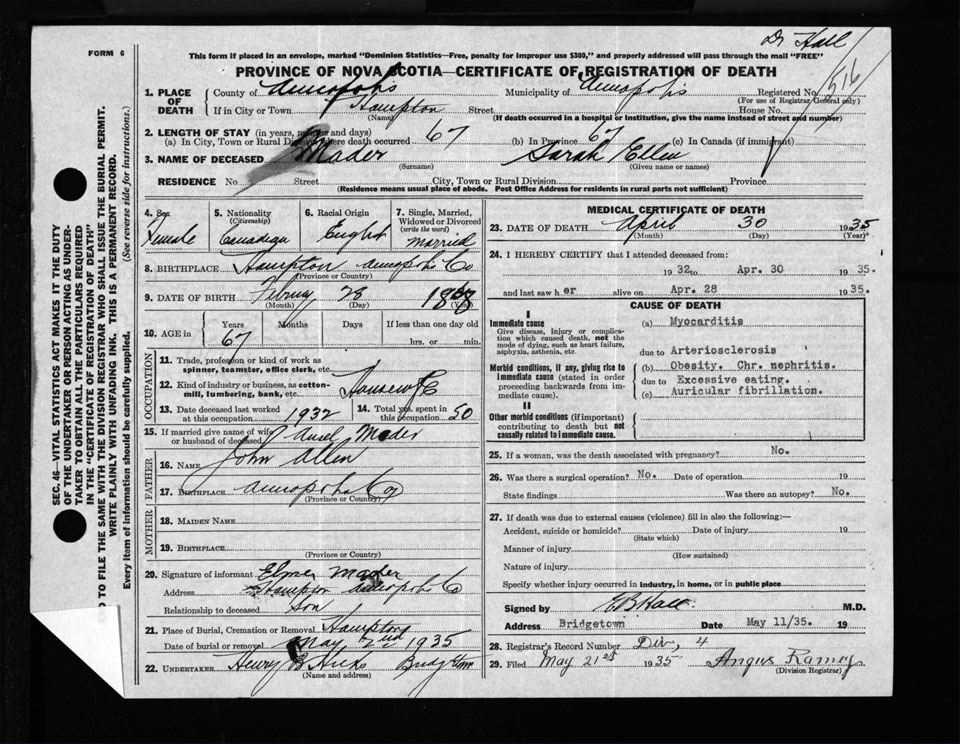 Dr Hall
516
FORM 6
This form if placed in an envelope, marked "Dominion Statistics—Free, penalty for improper use $300," and properly addressed will pass through the mail "FREE"
PROVINCE OF NOVA SCOTIA—CERTIFICATE OF REGISTRATION OF DEATH
1. PLACE OF DEATH
County of Annapolis Municipality of Annapolis Registered No.
(For use of Registrar General only)
If in City or Town Hampton Street House No.
(Name) (If death occurred in a hospital or institution, give the name instead of street and number)
2. LENGTH OF STAY (in years, months and days)
(a) In City, Town or Rural Division where death occurred 67 (b) In Province 67 (c) In Canada (if immigrant)
3. NAME OF DECEASED Mader Sarah Ellen
(Surname) (Given name or names)
RESIDENCE No. Street City, Town or Rural Division Province
(Residence means usual place of abode. Post Office Address for residents in rural parts not sufficient)
4. Sex 5. Nationality (Citizenship) 6. Racial Origin 7. Single, Married, Widowed or Divorced (write the word)
Female Canadian English married
8. BIRTHPLACE Hampton Annapolis Co
(Province or Country)
9. DATE OF BIRTH 28 1868
(Month) (Day) (Year)
10. AGE in Years Months Days If less than one day old
67 hrs. or min.
OCCUPATION
11. Trade, profession or kind of work as spinner, teamster, office clerk, etc.
12. Kind of industry or business, as cotton-mill, lumbering, bank, etc.
13. Date deceased last worked at this occupation 1932 14. Total yrs. spent in this occupation 50
15. If married give name of wife or husband of deceased Mader
FATHER
16. NAME John Allen
17. BIRTHPLACE Annapolis Co
(Province or Country)
MOTHER
18. MAIDEN NAME
19. BIRTHPLACE
(Province or Country)
20. Signature of informant Elmer Mader
Address Hampton Annapolis Co
Relationship to deceased son
21. Place of Burial, Cremation or Removal Hampton
Date of burial or removal May 2nd 1935
22. UNDERTAKER Henry B Hicks Bridgetown
(Name and address)
MEDICAL CERTIFICATE OF DEATH
23. DATE OF DEATH April 30 1935
(Month) (Day) (Year)
24. I HEREBY CERTIFY that I attended deceased from:
1932 to Apr. 30 1935.
and last saw her alive on Apr. 28 1935.
CAUSE OF DEATH
I
Immediate cause
Give disease, injury or complication which caused death, not the mode of dying, such as heart failure, asphyxia, asthenia, etc
(a) Myocarditis
due to Arteriosclerosis
Morbid conditions, if any, giving rise to immediate cause (stated in order proceeding backwards from immediate cause).
(b) Obesity. Chr. nephritis.
due to Excessive eating.
(c) Auricular fibrillation.
II
Other morbid conditions (if important) contributing to death but not causally related to immediate cause.
25. If a woman, was the death associated with pregnancy? No.
26. Was there a surgical operation? No. Date of operation 19
State findings Was there an autopsy? No.
27. If death was due to external causes (violence) fill in also the following:—
Accident, suicide or homicide? Date of injury 19
(State which)
Manner of injury
(How sustained)
Nature of injury
Specify whether injury occurred in industry, in home, or in public place
Signed by E B Hall. M.D.
Address Bridgetown Date May 11/35. 19
28. Registrar's Record Number Div. 4
29. Filed May 21st 1935 Angus Ramey
(Division Registrar)
SEC. 46—VITAL STATISTICS ACT MAKES IT THE DUTY
OF THE UNDERTAKER OR PERSON ACTING AS UNDER-
TAKER TO OBTAIN ALL THE PARTICULARS REQUIRED
IN THE "CERTIFICATE OF REGISTRATION OF DEATH"
TO FILE THE SAME WITH THE DIVISION REGISTRAR WHO SHALL ISSUE THE BURIAL PERMIT.
WRITE PLAINLY WITH UNFADING INK. THIS IS A PERMANENT RECORD.
Every item of information should be carefully supplied. (See reverse side for instructions.)